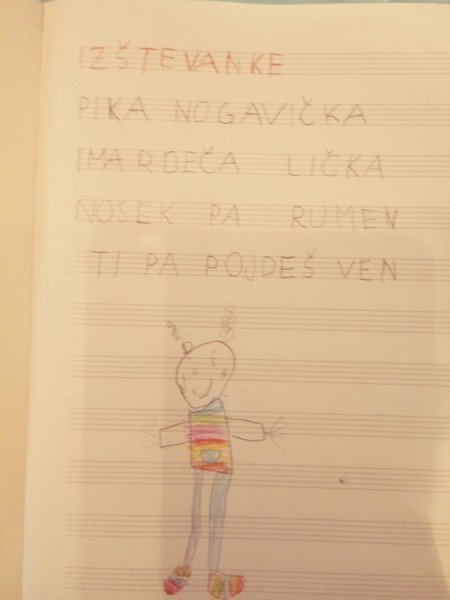 IZŠTEVANKE
PIKA NOGAVIČKA
IMA RDEČA LIČKA
NOSEK PA RUMEN
TI PA POJDEŠ VEN